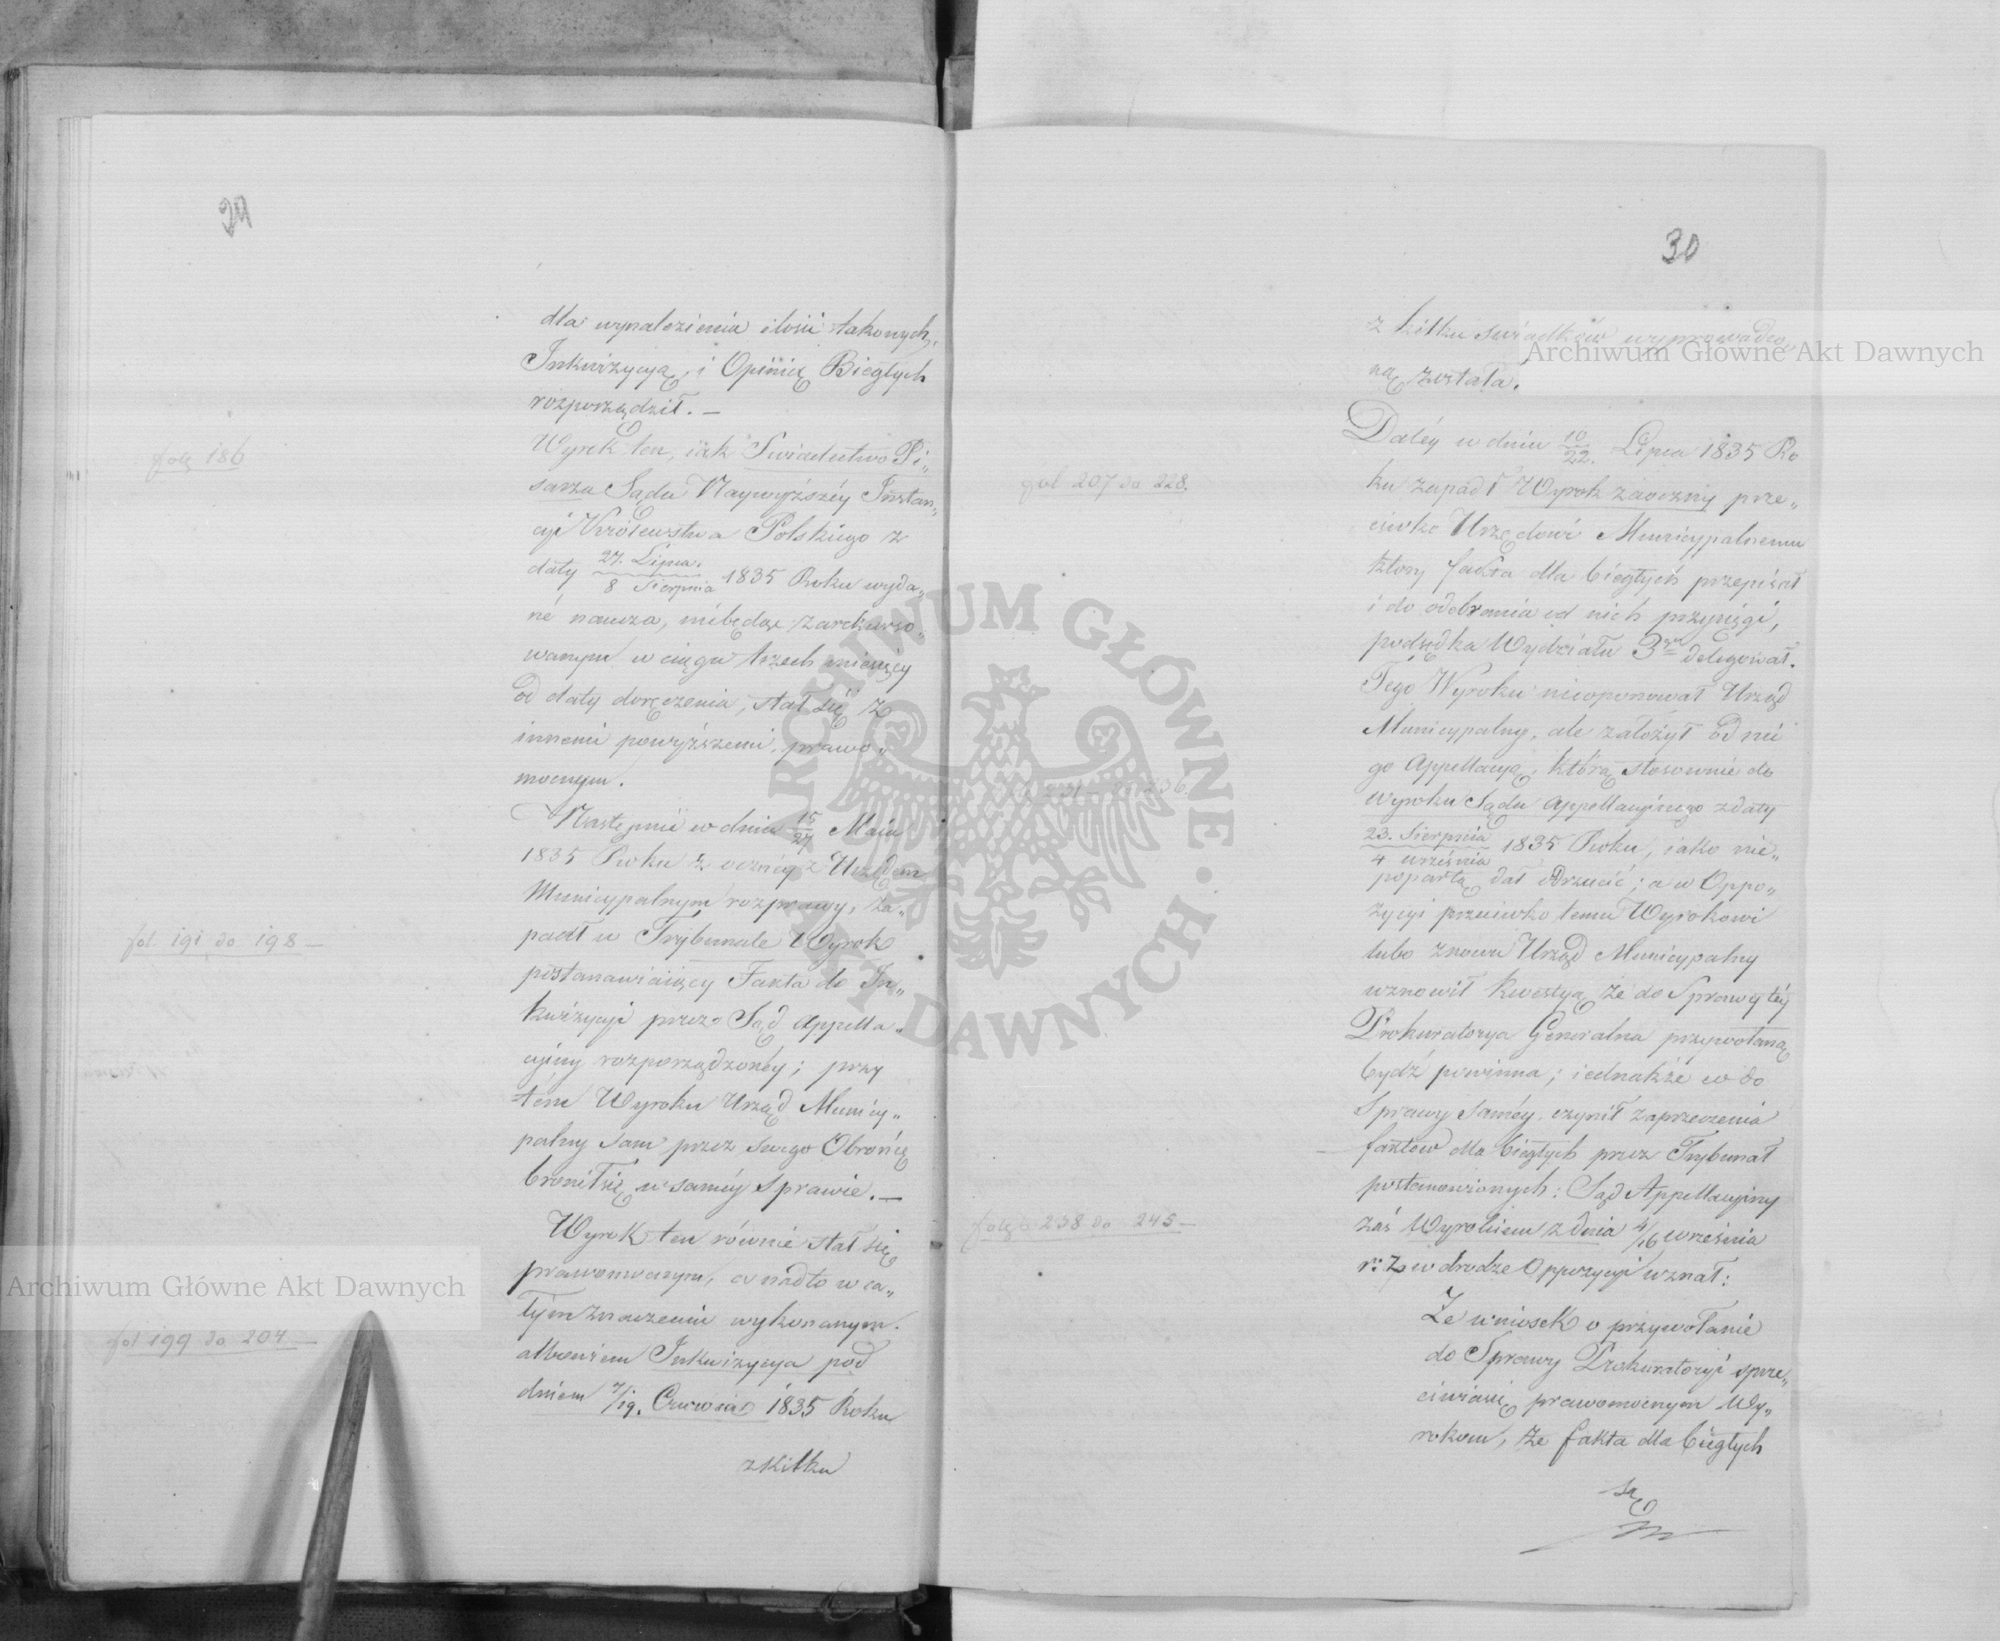 29
dla wynalezienia ilości takowych,
Inkwizycyą, i Opiinię Biegłych
rozporządził. —
folę 186
Wyrok ten, iak Swiadectwo Pi„
sarza Sądu Naywyższéy Instan„
cyi Królewstwa Polskiego z
daty 27. Lipca / 8 Sierpnia 1835 Roku wyda„
né naucza, niebędąc zarekurso„
wanym w ciągu trzech miesięcy
od daty doręczenia, stał się z
innemi powyższemi, prawo„
mocnym.
Następnie w dniu 15/27 Maia
1835 Roku z oczney z Urzędem
Municypalnym rozprawy, za„
fol. 191 do 198 —
padł w Trybunale Wyrok
postanawiaiący Fakta do In„
kwizycyi przez Sąd Appella„
cyiny rozporządzonéy; przy
tém Wyroku Urząd Municy„
palny sam przez swego Obrońcę
bronił się w saméy Sprawie. —
Wyrok ten równie stał się
prawomocnym, a nadto w ca„
łym znaczeniu wykonanym.
fol 199 do 204 —
albowiem Inkwizycya pod
dniem 7/19. Czerwca 1835 Roku
z kilku
30
z kilku swiadków wyprowadzo„
ną została.
Daléy w dniu 10/22. Lipca 1835 Ro
fol 207 do 228.
ku zapadł Wyrok zaoczny prze„
ciwko Urzędowi Municypalnemu
który fakta dla biegłych przepisał
i do odebrania od nich przysięgi,
podsędka Wydziału 3go delegował.
Tego Wyroku nieoponował Urząd
Municypalny, ale założył od nié
go Appellacyą, którą stosownie do
231 — do 236
Wyroku Sądu Appellacyinego z daty
23. Sierpnia / 4 września 1835 Roku, iako nie„
popartą dał odrzucić; a w Oppo„
zycyi przeciwko temu Wyrokowi
lubo znowu Urząd Municypalny
wznowił kwestyą, że do Sprawy téy
Prokuratorya Generalna przywołaną
bydź powinna; iednakże w do
Sprawy saméy, czynił zaprzeczenia
faktów dla biegłych przez Trybunał
postanowionych: Sąd Appellacyiny
folę 238 do 245 —
zaś Wyrokiem z dnia 4/16 września
r: z w drodze Oppozycyi uznał:
Że wniosek o przywołanie
do Sprawy Prokuratoryi sprze„
ciwia się prawomocnym Wy„
rokom, że fakta dla biegłych
są
Archiwum Główne Akt Dawnych
Archiwum Główne Akt Dawnych
ARCHIWUM GŁÓWNE AKT DAWNYCH